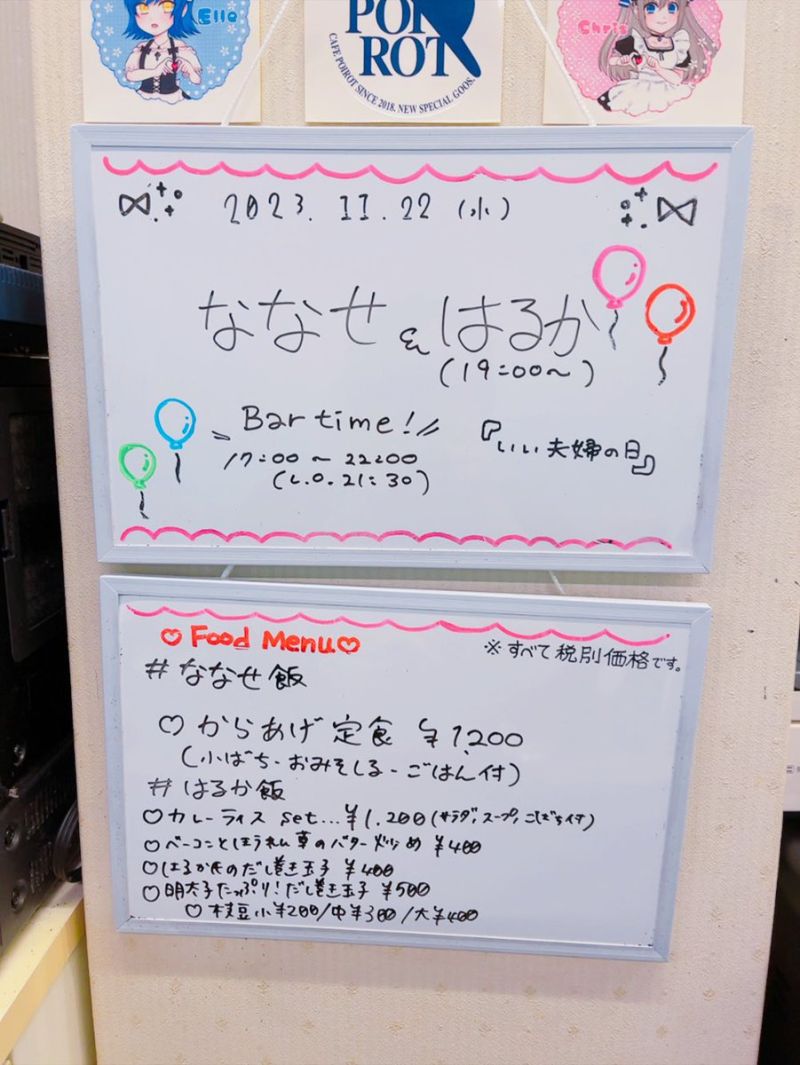 Elle
POI
ROT
CAFE POIROT SINCE 2018. NEW SPECIAL GOOS.
Chris
2023.11.22 (水)
ななせ & はるか
(19:00～)
Bar time!
17:00 ～ 22:00
(L.O.21:30)
『いい夫婦の日』
♡ Food Menu ♡
※すべて税別価格です。
#ななせ飯
♡からあげ定食 ¥1,200
(小ばち・おみそしる・ごはん付)
#はるか飯
♡カレーライス set...¥1,200(サラダ,スープ,こばち付)
♡ベーコンとほうれん草のバター炒め ¥400
♡はるか氏のだし巻き玉子 ¥400
♡明太子たっぷり!だし巻き玉子 ¥500
♡枝豆 小¥200/中¥300/大¥400